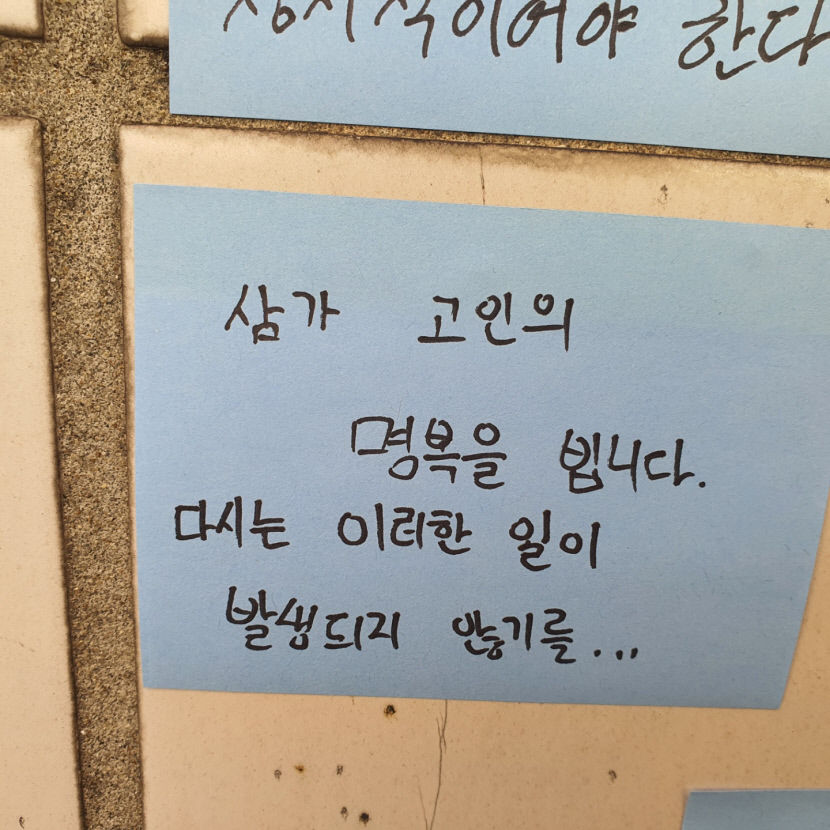 상시적이어야 한다
삼가 고인의
명복을 빕니다.
다시는 이러한 일이
발생되지 않기를...